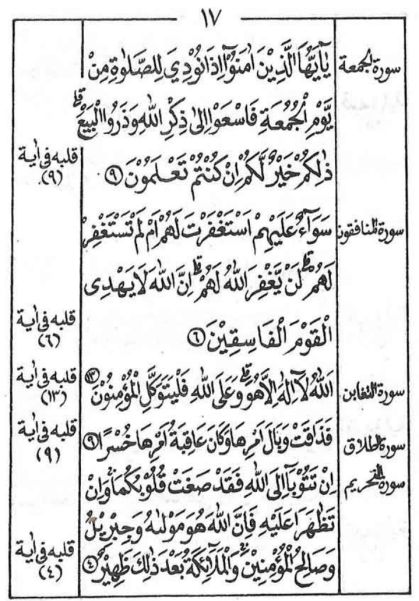 ١٧
سورة الجمعة
يٰٓاَيُّهَا الَّذِيْنَ اٰمَنُوْٓا اِذَا نُوْدِيَ لِلصَّلٰوةِ مِنْ
يَّوْمِ الْجُمُعَةِ فَاسْعَوْا اِلٰى ذِكْرِ اللّٰهِ وَذَرُوا الْبَيْعَ ۗ
ذٰلِكُمْ خَيْرٌ لَّكُمْ اِنْ كُنْتُمْ تَعْلَمُوْنَ ٩
قلبه فى اٰية
(٩)
سورة المنافقون
سَوَآءٌ عَلَيْهِمْ اَسْتَغْفَرْتَ لَهُمْ اَمْ لَمْ تَسْتَغْفِرْ
لَهُمْ ۗ لَنْ يَّغْفِرَ اللّٰهُ لَهُمْ ۗ اِنَّ اللّٰهَ لَا يَهْدِى
الْقَوْمَ الْفَاسِقِيْنَ ٦
قلبه فى اٰية
(٦)
سورة التغابن
اَللّٰهُ لَآ اِلٰهَ اِلَّا هُوَ ۗ وَعَلَى اللّٰهِ فَلْيَتَوَكَّلِ الْمُؤْمِنُوْنَ ١٣
قلبه فى اٰية
(١٣)
سورة الطلاق
فَذَاقَتْ وَبَالَ اَمْرِهَا وَكَانَ عَاقِبَةُ اَمْرِهَا خُسْرًا ٩
قلبه فى اٰية
(٩)
سورة التحريم
اِنْ تَتُوْبَآ اِلَى اللّٰهِ فَقَدْ صَغَتْ قُلُوْبُكُمَا ۚ وَاِنْ
تَظٰهَرَا عَلَيْهِ فَاِنَّ اللّٰهَ هُوَ مَوْلٰىهُ وَجِبْرِيْلُ
وَصَالِحُ الْمُؤْمِنِيْنَ ۚ وَالْمَلٰٓئِكَةُ بَعْدَ ذٰلِكَ ظَهِيْرٌ ٤
قلبه فى اٰية
(٤)